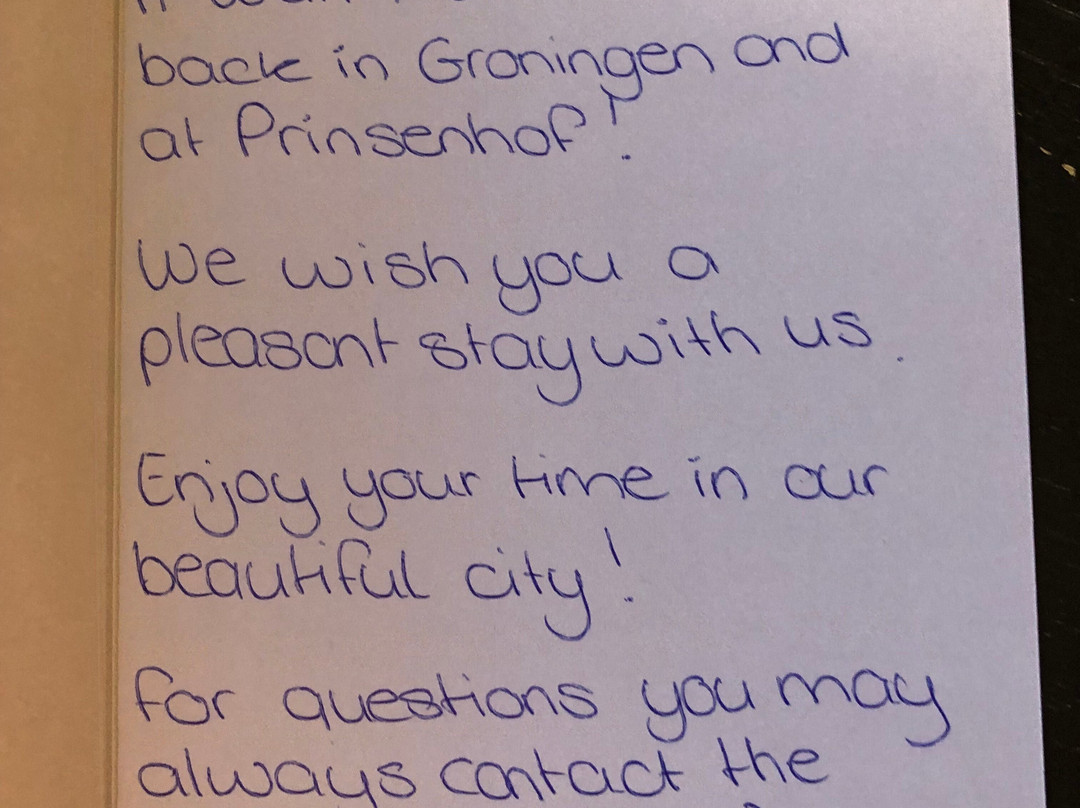 back in Groningen and
at Prinsenhof!
We wish you a
pleasant stay with us.
Enjoy your time in our
beautiful city!
For questions you may
always contact the